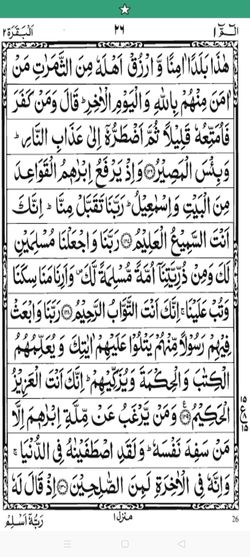 البقرة ٢ ٢٦ الٓمّٓ ١
هٰذَا بَلَدًا اٰمِنًا وَّ ارْزُقْ اَهْلَهٗ مِنَ الثَّمَرٰتِ مَنْ
اٰمَنَ مِنْهُمْ بِاللّٰهِ وَ الْیَوْمِ الْاٰخِرِ ؕ قَالَ وَ مَنْ كَفَرَ
فَاُمَتِّعُهٗ قَلِیْلًا ثُمَّ اَضْطَرُّهٗۤ اِلٰى عَذَابِ النَّارِ ؕ
وَ بِئْسَ الْمَصِیْرُ ﴿۱۲۶﴾ وَ اِذْ یَرْفَعُ اِبْرٰهٖمُ الْقَوَاعِدَ
مِنَ الْبَیْتِ وَ اِسْمٰعِیْلُ ؕ رَبَّنَا تَقَبَّلْ مِنَّا ؕ اِنَّكَ
اَنْتَ السَّمِیْعُ الْعَلِیْمُ ﴿۱۲۷﴾ رَبَّنَا وَ اجْعَلْنَا مُسْلِمَیْنِ
لَكَ وَ مِنْ ذُرِّیَّتِنَاۤ اُمَّةً مُّسْلِمَةً لَّكَ ۪ وَ اَرِنَا مَنَاسِكَنَا
وَ تُبْ عَلَیْنَا ۚ اِنَّكَ اَنْتَ التَّوَّابُ الرَّحِیْمُ ﴿۱۲۸﴾ رَبَّنَا وَ ابْعَثْ
فِیْهِمْ رَسُوْلًا مِّنْهُمْ یَتْلُوْا عَلَیْهِمْ اٰیٰتِكَ وَ یُعَلِّمُهُمُ
الْكِتٰبَ وَ الْحِكْمَةَ وَ یُزَكِّیْهِمْ ؕ اِنَّكَ اَنْتَ الْعَزِیْزُ
الْحَكِیْمُ ﴿۱۲۹﴾ وَ مَنْ یَّرْغَبُ عَنْ مِّلَّةِ اِبْرٰهٖمَ اِلَّا
مَنْ سَفِهَ نَفْسَهٗ ؕ وَ لَقَدِ اصْطَفَیْنٰهُ فِی الدُّنْیَا ۚ
وَ اِنَّهٗ فِی الْاٰخِرَةِ لَمِنَ الصّٰلِحِیْنَ ﴿۱۳۰﴾ اِذْ قَالَ لَهٗ
رَبُّهٗۤ اَسْلِمْ منزل ١ 26